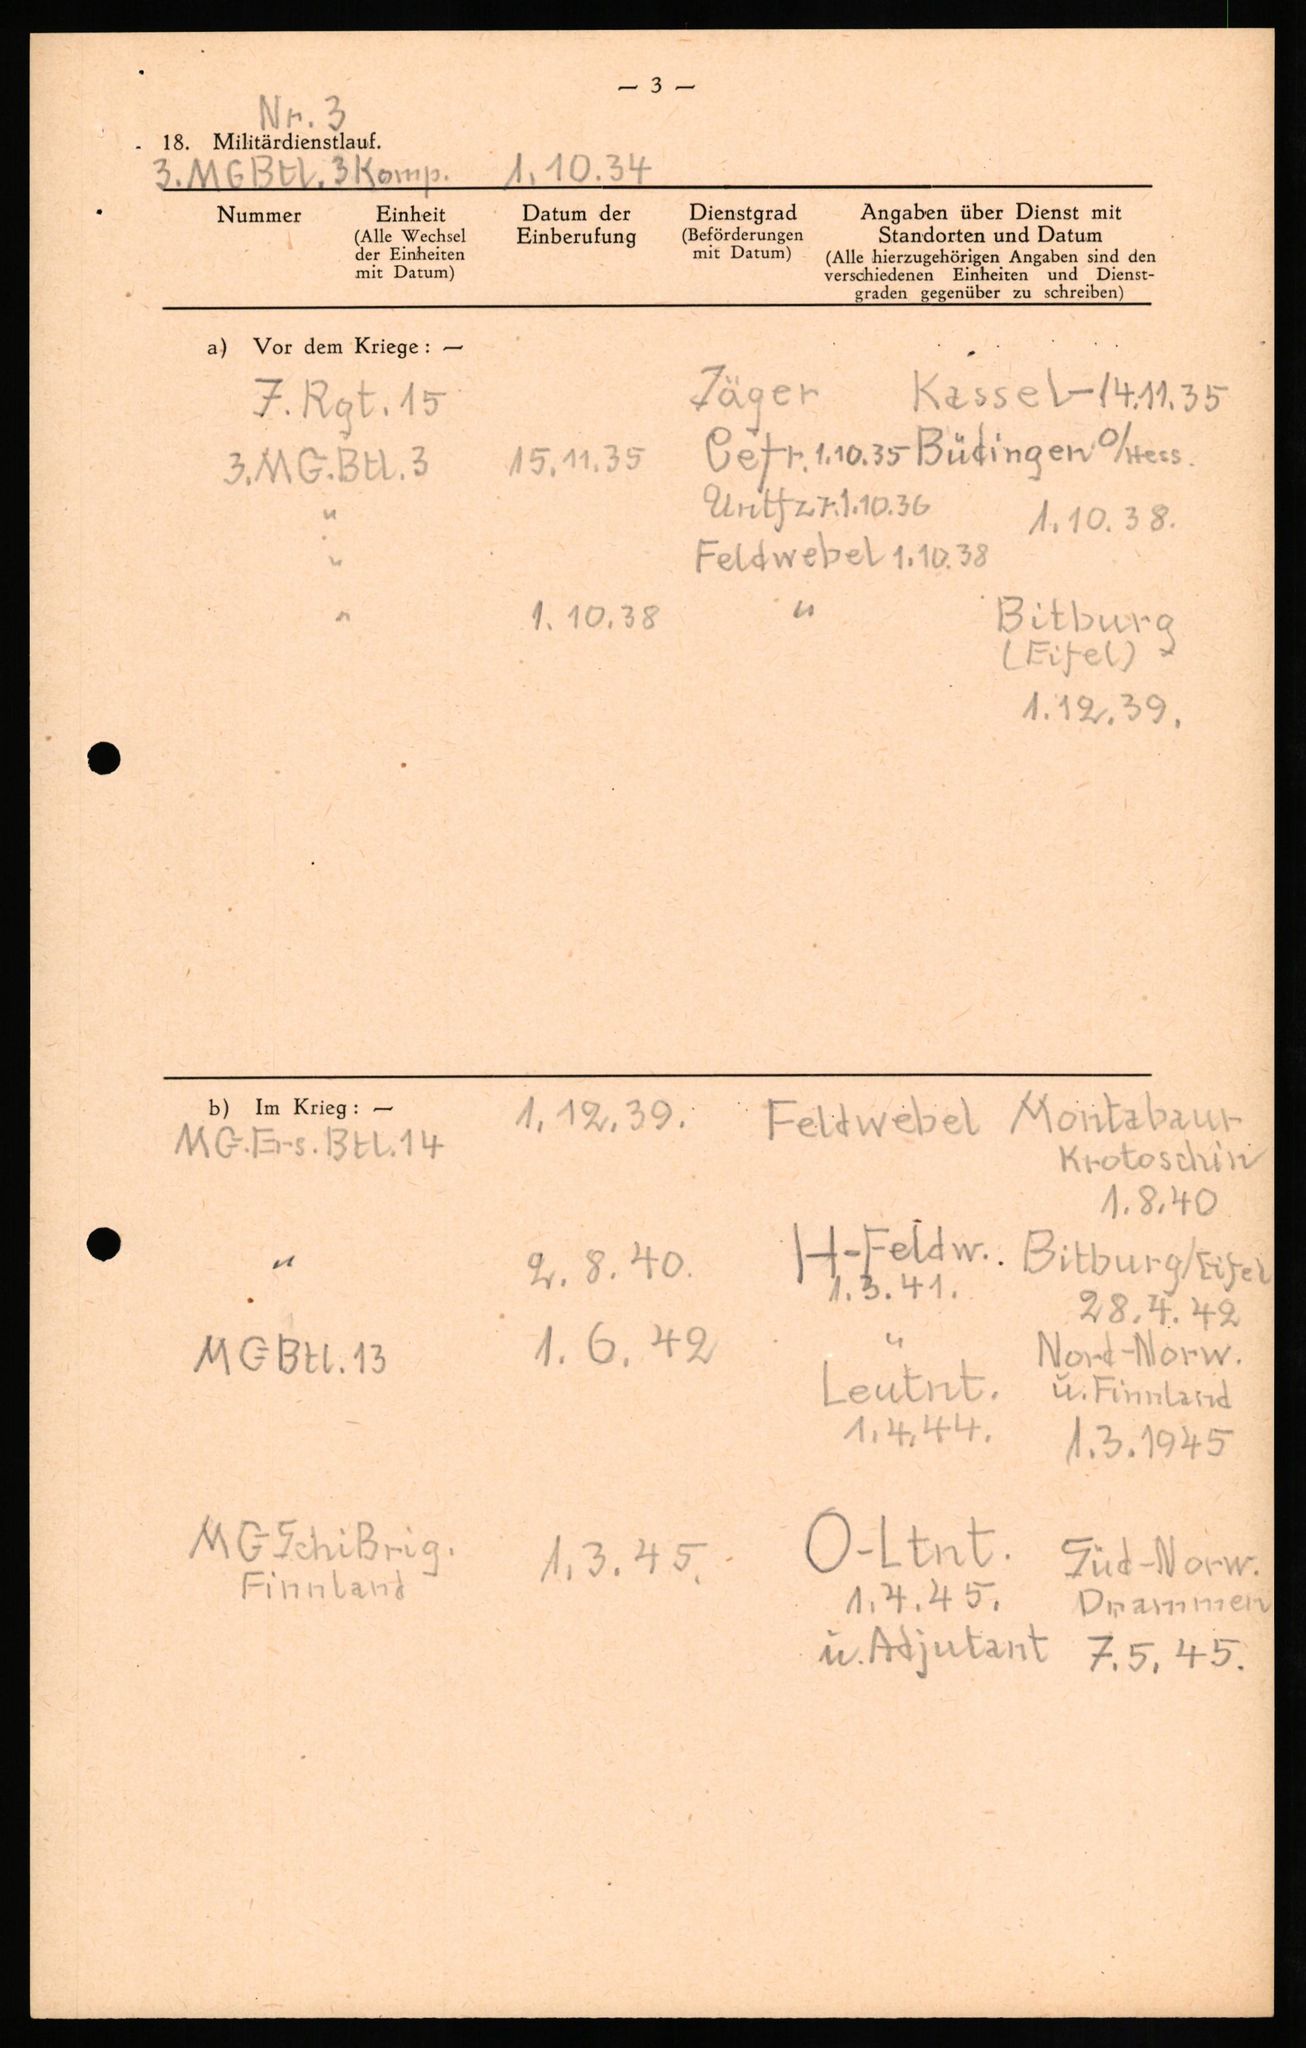 — 3 —
Nr. 3
18. Militärdienstlauf.
3. MGBtl. 3 Komp. 1.10.34
Nummer Einheit Datum der Dienstgrad Angaben über Dienst mit
(Alle Wechsel Einberufung (Beförderungen Standorten und Datum
der Einheiten mit Datum) (Alle hierzugehörigen Angaben sind den
mit Datum) verschiedenen Einheiten und Dienst-
graden gegenüber zu schreiben)
a) Vor dem Kriege: —
7. Rgt. 15 Jäger Kassel - 14.11.35
3. MG.Btl. 3 15.11.35 Gefr. 1.10.35 Büdingen O/Hess.
" Untfzr. 1.10.36 1.10.38.
" Feldwebel 1.10.38
" 1.10.38 " Bitburg
(Eifel)
1.12.39.
b) Im Krieg: — 1.12.39. Feldwebel Montabaur
MG.Ers.Btl.14 Krotoschin
1.8.40
" 2.8.40. H-Feldw. Bitburg/Eifel
1.3.41. 28.4.42
MGBtl.13 1.6.42 " Nord-Norw.
Leutnt. u. Finnland
1.4.44. 1.3.1945
MG SchiBrig. 1.3.45. O-Ltnt. Süd-Norw.
Finnland 1.4.45. Drammen
u. Adjutant 7.5.45.